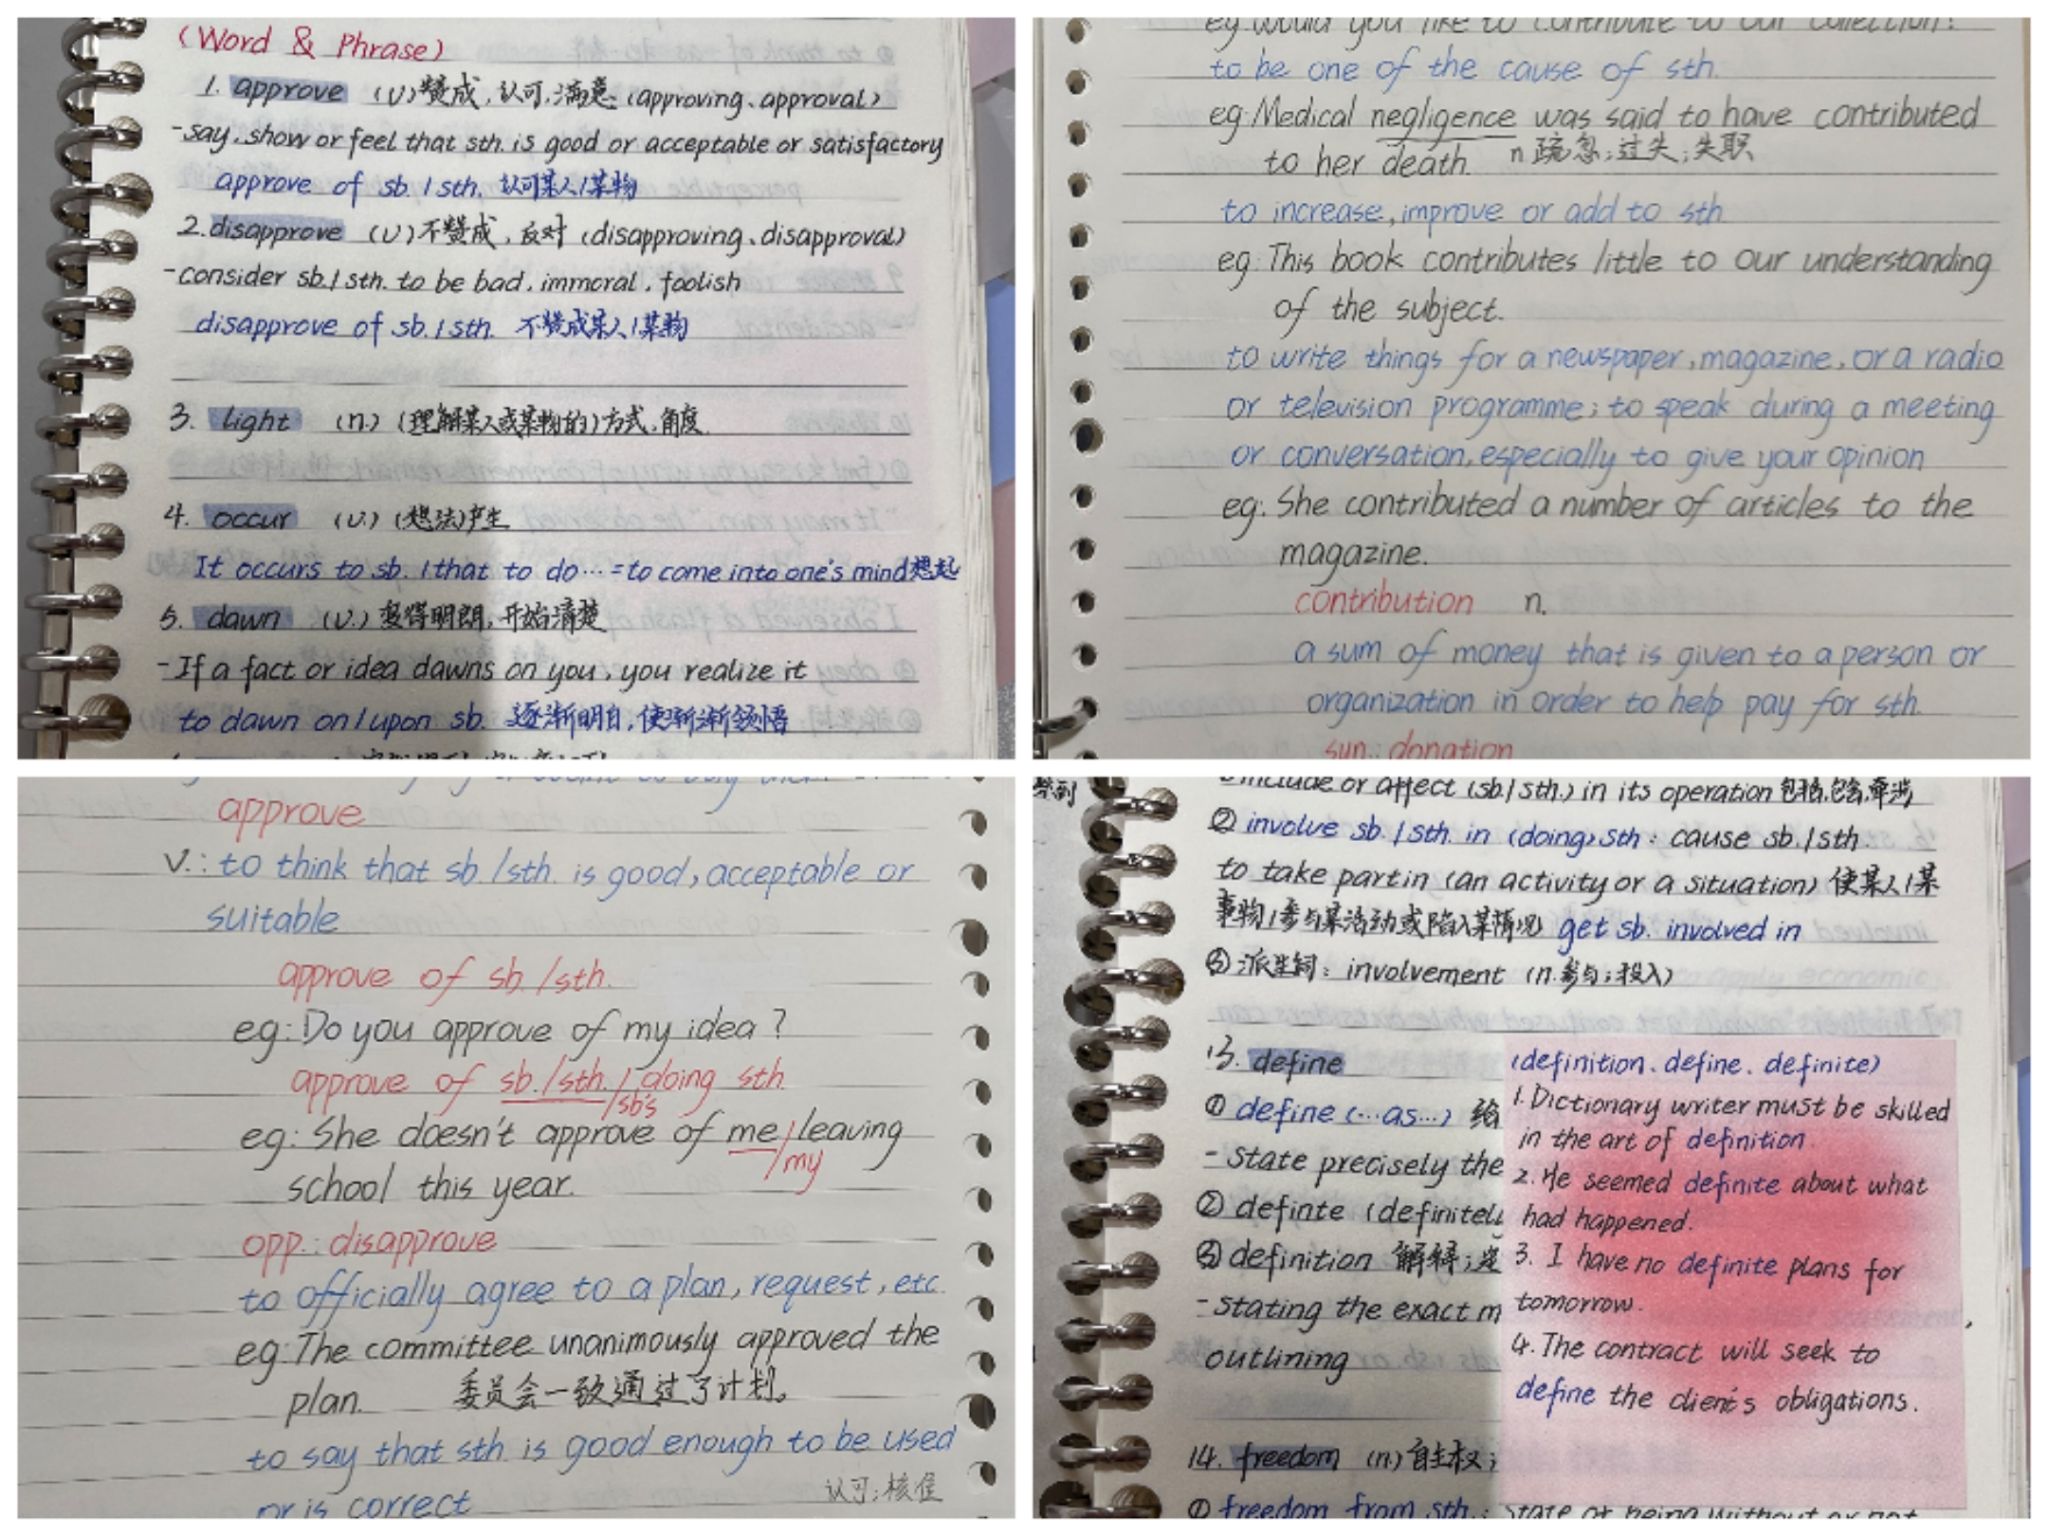 (Word & Phrase)
1. approve (v.)赞成,认可,满意 (approving、approval)
-say, show or feel that sth. is good or acceptable or satisfactory
approve of sb. / sth. 认可某人/某物
2. disapprove (v.)不赞成, 反对 (disapproving、disapproval)
-consider sb. / sth. to be bad, immoral, foolish
disapprove of sb. / sth. 不赞成某人/某物
3. light (n.) (理解某人或某物的)方式、角度.
4. occur (v.) (想法)产生
It occurs to sb. / that to do… = to come into one's mind 想起
5. dawn (v.) 变得明朗, 开始清楚
-If a fact or idea dawns on you, you realize it
to dawn on / upon sb. 逐渐明白, 使渐渐领悟
eg. Would you like to contribute to our collection?
to be one of the cause of sth.
eg: Medical negligence was said to have contributed
to her death. n.疏忽;过失;失职
to increase, improve or add to sth
eg: This book contributes little to our understanding
of the subject.
to write things for a newspaper, magazine, or a radio
or television programme; to speak during a meeting
or conversation, especially to give your opinion
eg: She contributed a number of articles to the
magazine.
contribution n.
a sum of money that is given to a person or
organization in order to help pay for sth.
syn.: donation
approve
v.: to think that sb. / sth. is good, acceptable or
suitable
approve of sb. / sth.
eg: Do you approve of my idea?
approve of sb. / sth. / doing sth.
/sb's
eg: She doesn't approve of me / leaving
/my
school this year.
opp.: disapprove
to officially agree to a plan, request, etc.
eg: The committee unanimously approved the
plan. 委员会一致通过了计划。
to say that sth. is good enough to be used
认可;核准
or is correct
include or affect (sb. / sth.) in its operation 包括,包含,牵涉
② involve sb. / sth. in (doing) sth : cause sb. / sth.
to take part in (an activity or a situation) 使某人/某
事物/参与某活动或陷入某情况 get sb. involved in
③ 派生词: involvement (n.参与;投入)
13. define
① define (…as…) 给
- state precisely the
② definte (definitel
③ definition 解释;定
-stating the exact m
outlining
(definition、define、definite)
1. Dictionary writer must be skilled
in the art of definition.
2. He seemed definite about what
had happened.
3. I have no definite plans for
tomorrow.
4. The contract will seek to
define the client's obligations.
14. freedom (n.) 自主权;
① freedom from sth.: state of being without or not